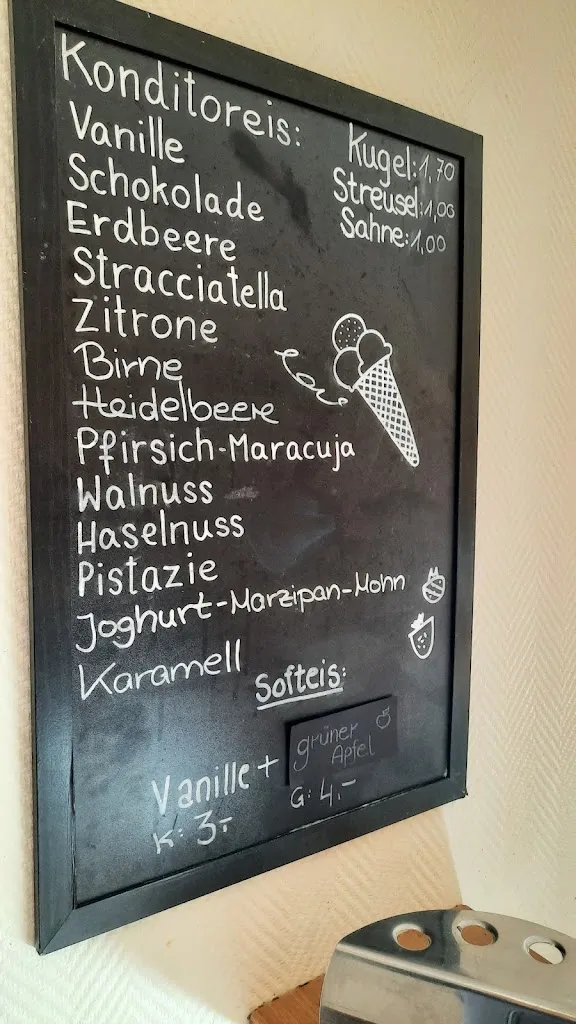 Konditoreis:
Kugel: 1,70
Streusel: 1,00
Sahne: 1,00
Vanille
Schokolade
Erdbeere
Stracciatella
Zitrone
Birne
Heidelbeere
Pfirsich-Maracuja
Walnuss
Haselnuss
Pistazie
Joghurt-Marzipan-Mohn
Karamell
Softeis:
Vanille + grüner
Apfel
K: 3,- G: 4,-